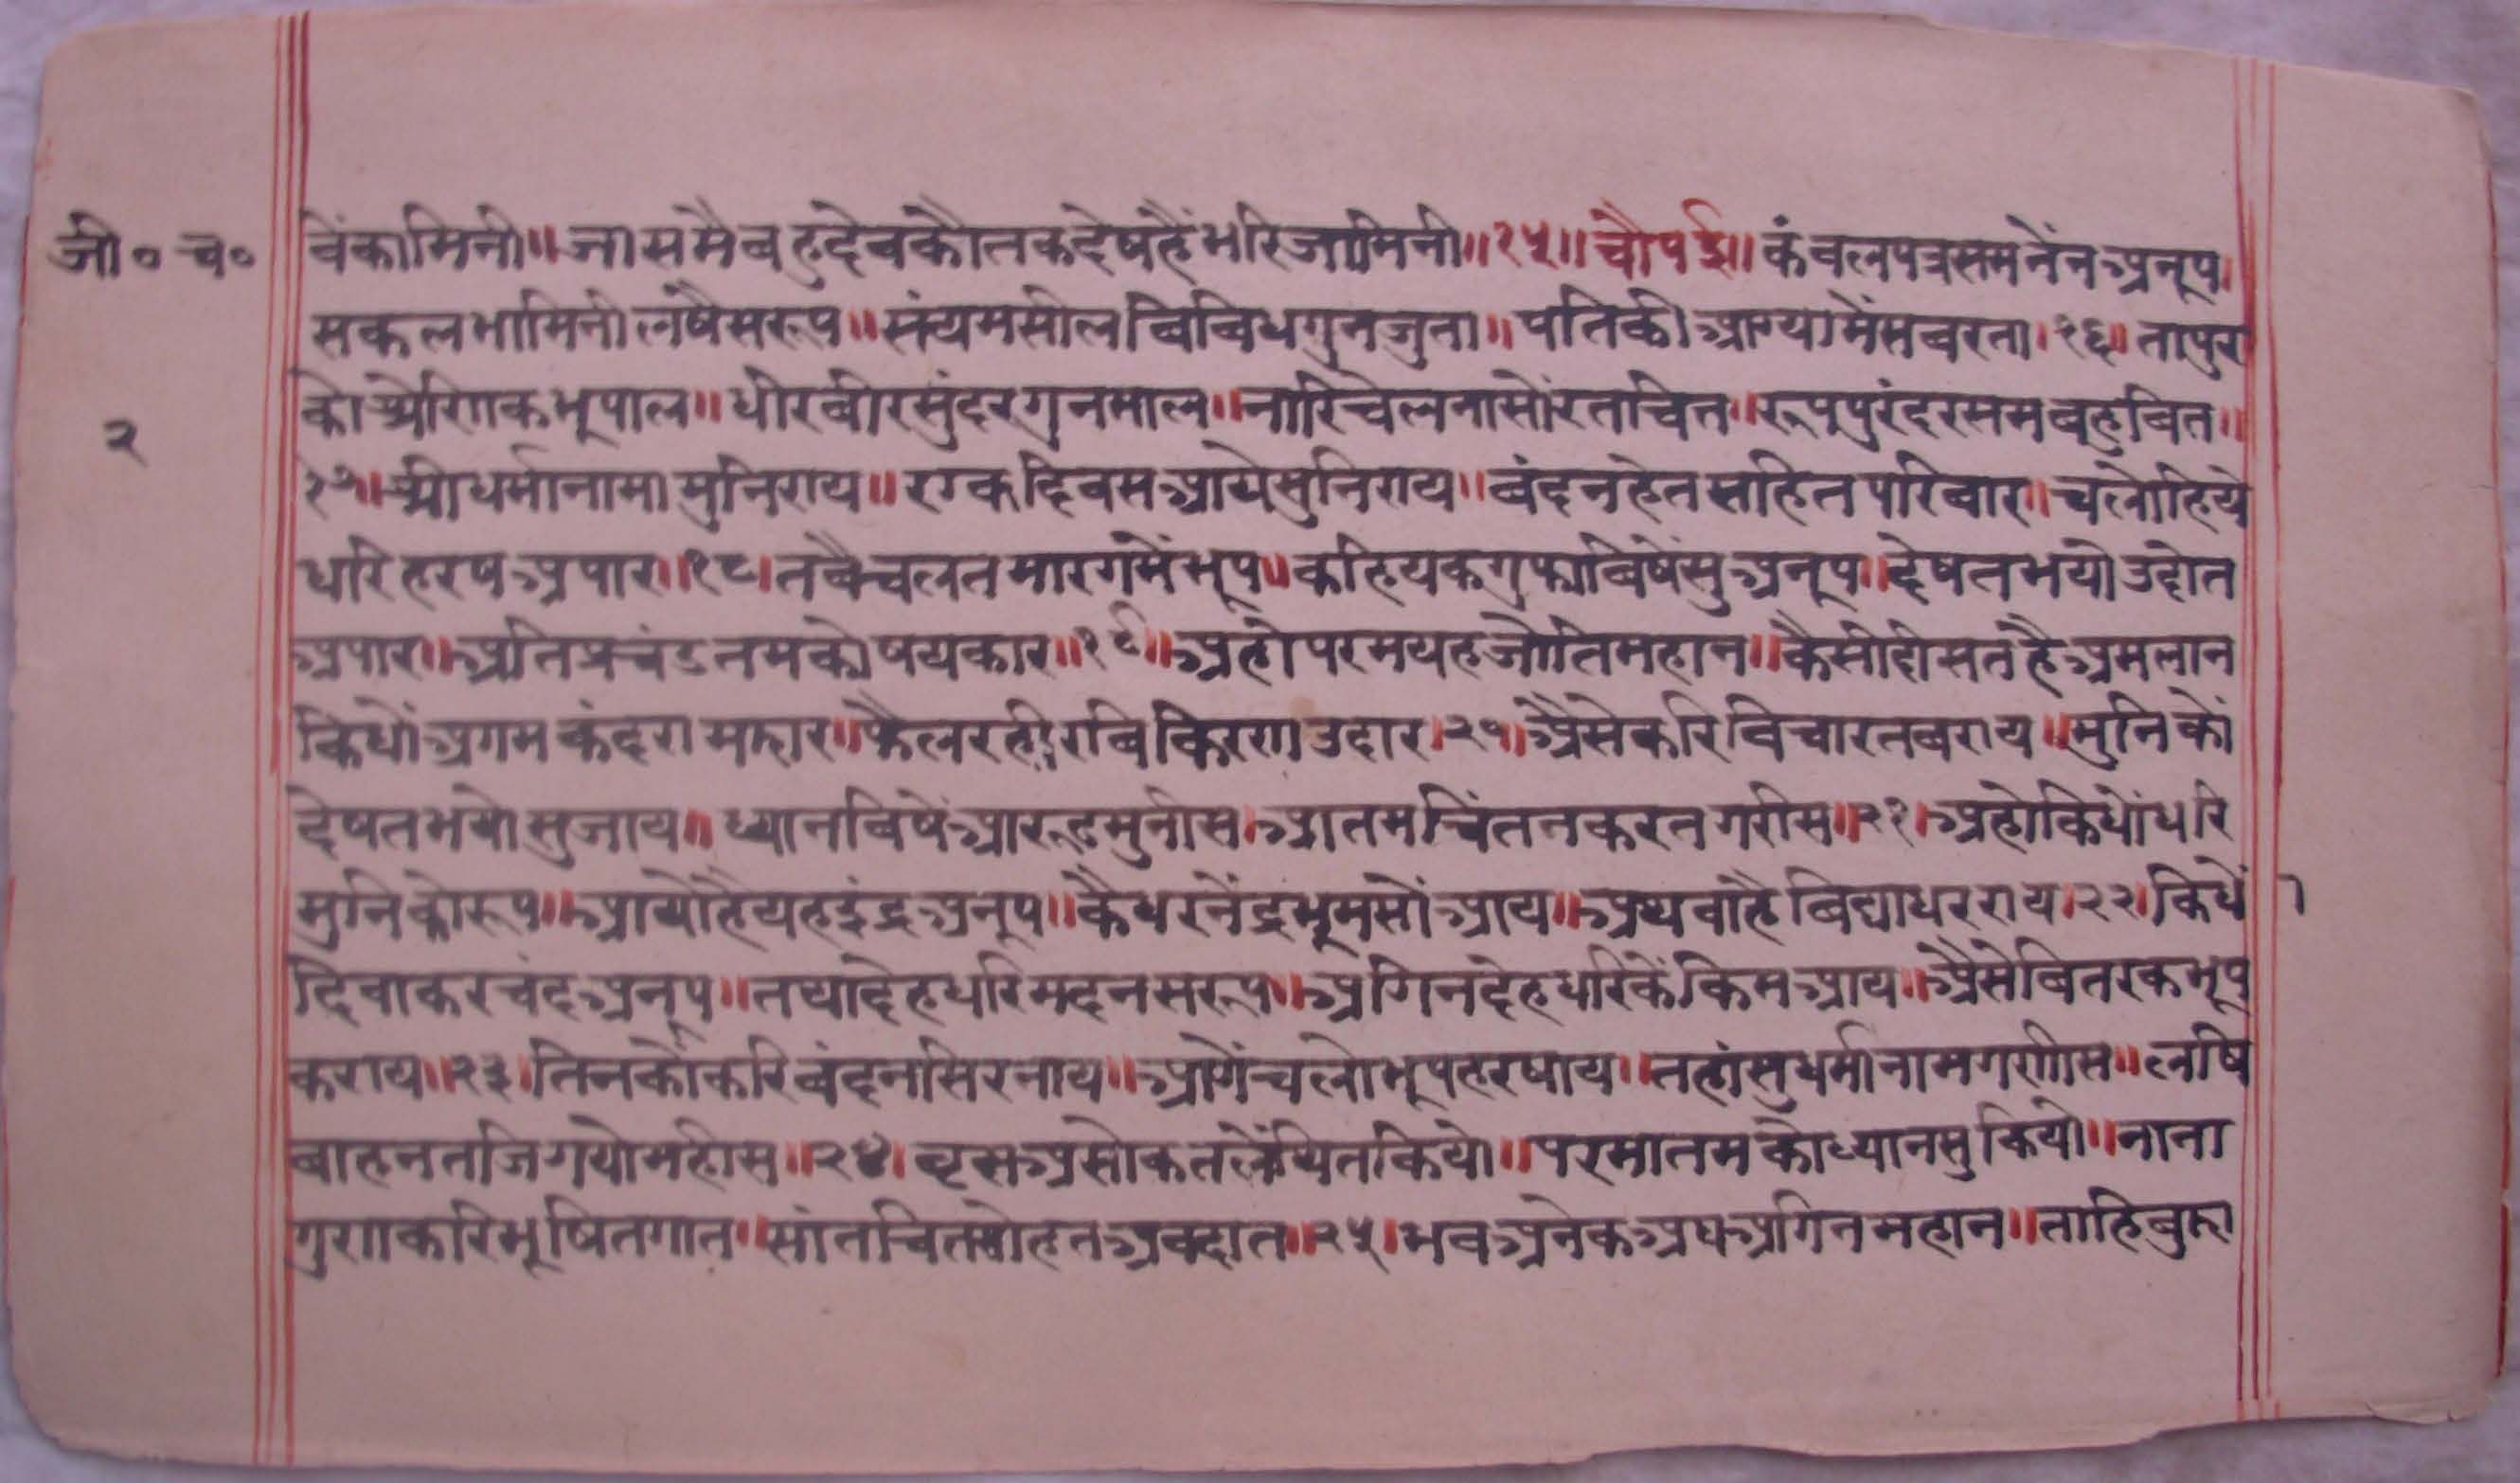 जी० च०
२
वेंकामिनी॥ जासमैबहुदेवकौतकदेषहैंभरिजामिनी॥१५॥ चौपई॥ कंवलपत्रसमनेंनअनूप।
सकलभामिनीलषैसरूप॥ संयमसीलबिबिधगुनजुता॥ पतिकीआग्यामेंसबरता।१६॥ तापुर
कोश्रेणिकभूपाल॥ धीरबीरसुंदरगुनमाल॥ नारिचेलनासोंरतचित्त॥ रूपपुरंदरसमबहुबित॥
१७॥ श्रीधर्मानामामुनिराय॥ एकदिवसआयेमुनिराय॥ बंदनहेतसहितपरिवार॥ चलोहिये
धरिहरषअपार॥१८। तबैचलतमारगमेंभूप॥ कहियकगुफाबिषेंसुअनूप॥ देषतभयोउदोत
अपार॥ अतिप्रचंडतमकोषयकार॥१९॥ अहोपरमयहजोतिमहान॥ कैसीदीसतहैअमलान
किधोंअगमकंदरामझार॥ फैलरहीरबिकिरणउदार।२०। अैसेकरिविचारतबराय॥ मुनिकों
देषतभयोसुजाय॥ ध्यानबिषेंआरूढमुनीस। आतमचिंतनकरतगरीस॥२१। अहोकिधोंधरि
मुनिकोरूप॥ आयोहैयहइंद्रअनूप॥ कैधरनेंद्रभूमसोंआय॥ अथवाहैबिद्याधरराय।२२। किधें ा
दिवाकरचंदअनूप॥ तथादेहधरिमदनसरूप॥ अगिनदेहधरिकेंकिमआय॥ अैसेबितरकभूप
कराय॥२३। तिनकौंकरिबंदनासिरनाय॥ आगेंचलोभूपहरषाय॥ तहांसुधर्मानामगणीस॥ लषि
बाहनतजिगयोमहीस॥२४। वृसअसोकतलेंथितकियो॥ परमातमकोध्यानसुकियो॥ नाना
गुणकरिभूषितगात॥ सांतचितसोहतअवदात॥२५। भवअनेकअघअगिनमहान॥ ताहिबुझा